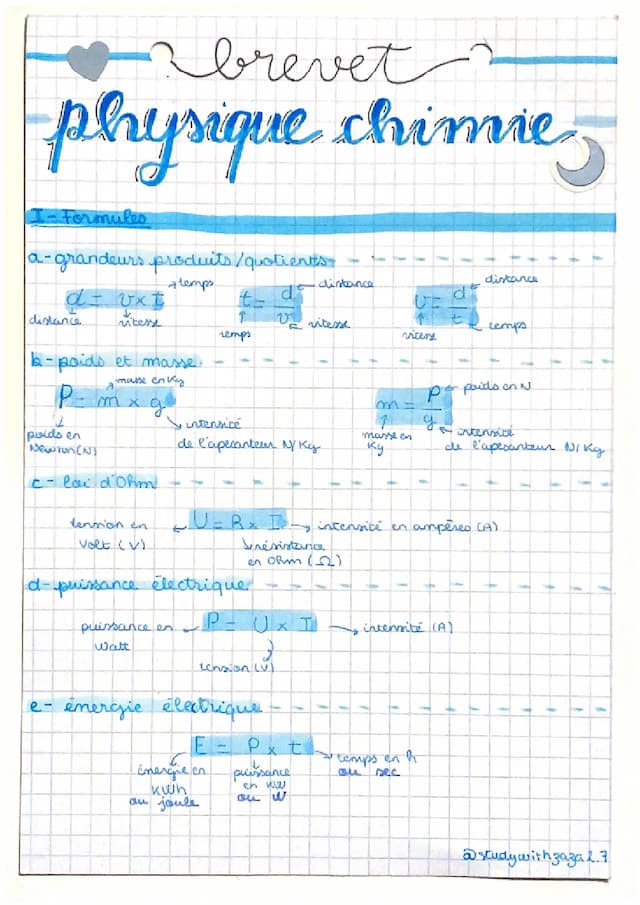 brevet
physique chimie
I - Formules
a - grandeurs produits/quotients
temps
d = v x t
distance vitesse
distance
t = d / v
temps vitesse
distance
v = d / t
vitesse temps
b - poids et masse
masse en Kg
P = m x g
poids en
Newton (N)
intensité
de l'apesanteur N/Kg
poids en N
m = P / g
masse en
Kg
intensité
de l'apesanteur N/Kg
c - loi d'Ohm
tension en
Volt (V)
U = R x I
intensité en ampères (A)
résistance
en Ohm (Ω)
d - puissance électrique
puissance en
Watt
P = U x I
intensité (A)
tension (V)
e - énergie électrique
E = P x t
temps en h
ou sec
énergie en
KWh
ou joule
puissance
en KW
ou W
@studywithzaza2.7